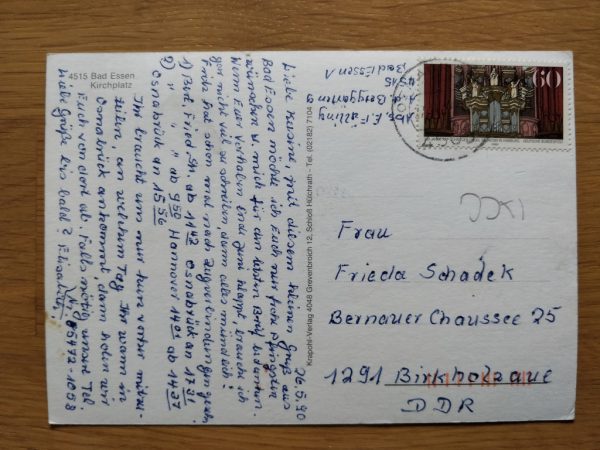 4515 Bad Essen
Kirchplatz
Krapohl-Verlag 4048 Grevenbroich 12, Schloß Hülchrath - Tel. (02182) 7104
4515
Bad Essen 1
60
26.5.90
Liebe Kusine, mit diesem kleinen Gruß aus
Bad Essen möchte ich Euch nur frohe Pfingsten
wünschen u. mich für den lieben Brief bedanken.
Wenn Euer Vorhaben Ende Juni klappt brauch ich
gar nicht viel zu schreiben, dann alles mündlich!
Fritz hat schon mal nach Zugverbindungen gesehn.
1) Bhf. Fried. Str. ab 11 42 Osnabrück an 17 31
2) " " " ab 9 50 Hannover 14 01 ab 14 37
Osnabrück an 15 56
Ihr braucht uns nur kurz vorher mitzu-
teilen, an welchem Tag Ihr wann in
Osnabrück ankommt, dann holen wir
Euch von dort ab. Falls nötig unsere Tel.
Nr. 05472-1008
Liebe Grüße bis bald? Elisabeth
Frau
Frieda Schadek
Bernauer Chaussee 25
1291 Birkholzaue
DDR